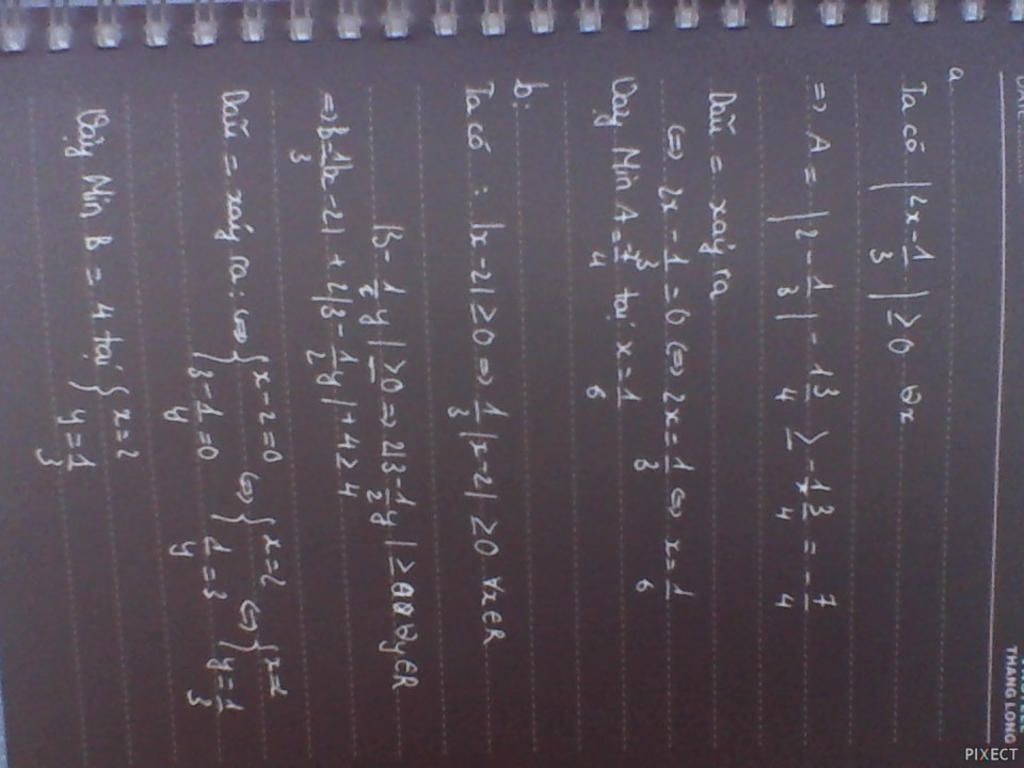 DATE
THANG LONG
a
Ta có |2x - 1/3| ≥ 0 ∀x
=> A = |2 - 1/3| - 1 3/4 ≥ - 1 3/4 = - 7/4
Dấu = xảy ra
<=> 2x - 1/3 = 0 <=> 2x = 1/3 <=> x = 1/6
Vậy Min A = /4 tại x = 1/6
b:
Ta có : |x - 2| ≥ 0 => 1/3 |x - 2| ≥ 0 ∀x∈R
|3 - 1/2 y| ≥ 0 => 2|3 - 1/2 y| ≥ 0 ∀y∈R
=> B = 1/3|x - 2| + 2|3 - 1/2 y| + 4 ≥ 4
Dấu = xảy ra: <=> { x - 2 = 0 <=> { x = 2 <=> { x = 2
3 - 1/y = 0 1/y = 3 y = 1/3
Vậy Min B = 4 tại { x = 2
y = 1/3
PIXECT